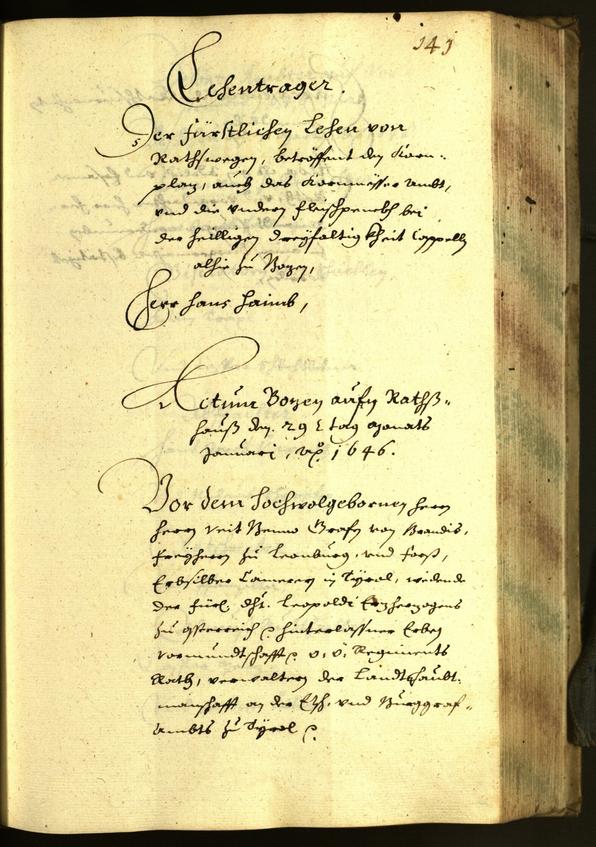 143
Lehentrager.
Der fürstlichen Lehen von
Rathswegen, betröffent den Korn-
plaz, auch das Kornmösser Ambt,
vnd die vndern fleischpenckh bei
der heilligen dreyfaltigkheit Cappelln
alhie zu Bozen,
Herr Hans Haimb,
Actum Bozen aufm Raths-
hauß den 29 tag Monats
Januari, Ao 1646.
Vor dem Hochwolgebornen herrn
herrn Veit Benno Grafn von Brandis,
freyherrn zu Leonburg, vnd Forst,
Erbsilber Camerern in Tyrol, weilende
der fürl. dht. Leopoldi Erzherzogens
zu Össterreich hinterlassner Erben
vormundtschafft v. ö. Regiments
Rath, verwaltern der Landtshaubt-
manschafft an der Etsch, vnd Burggraf-
Ambts zu Tyrol